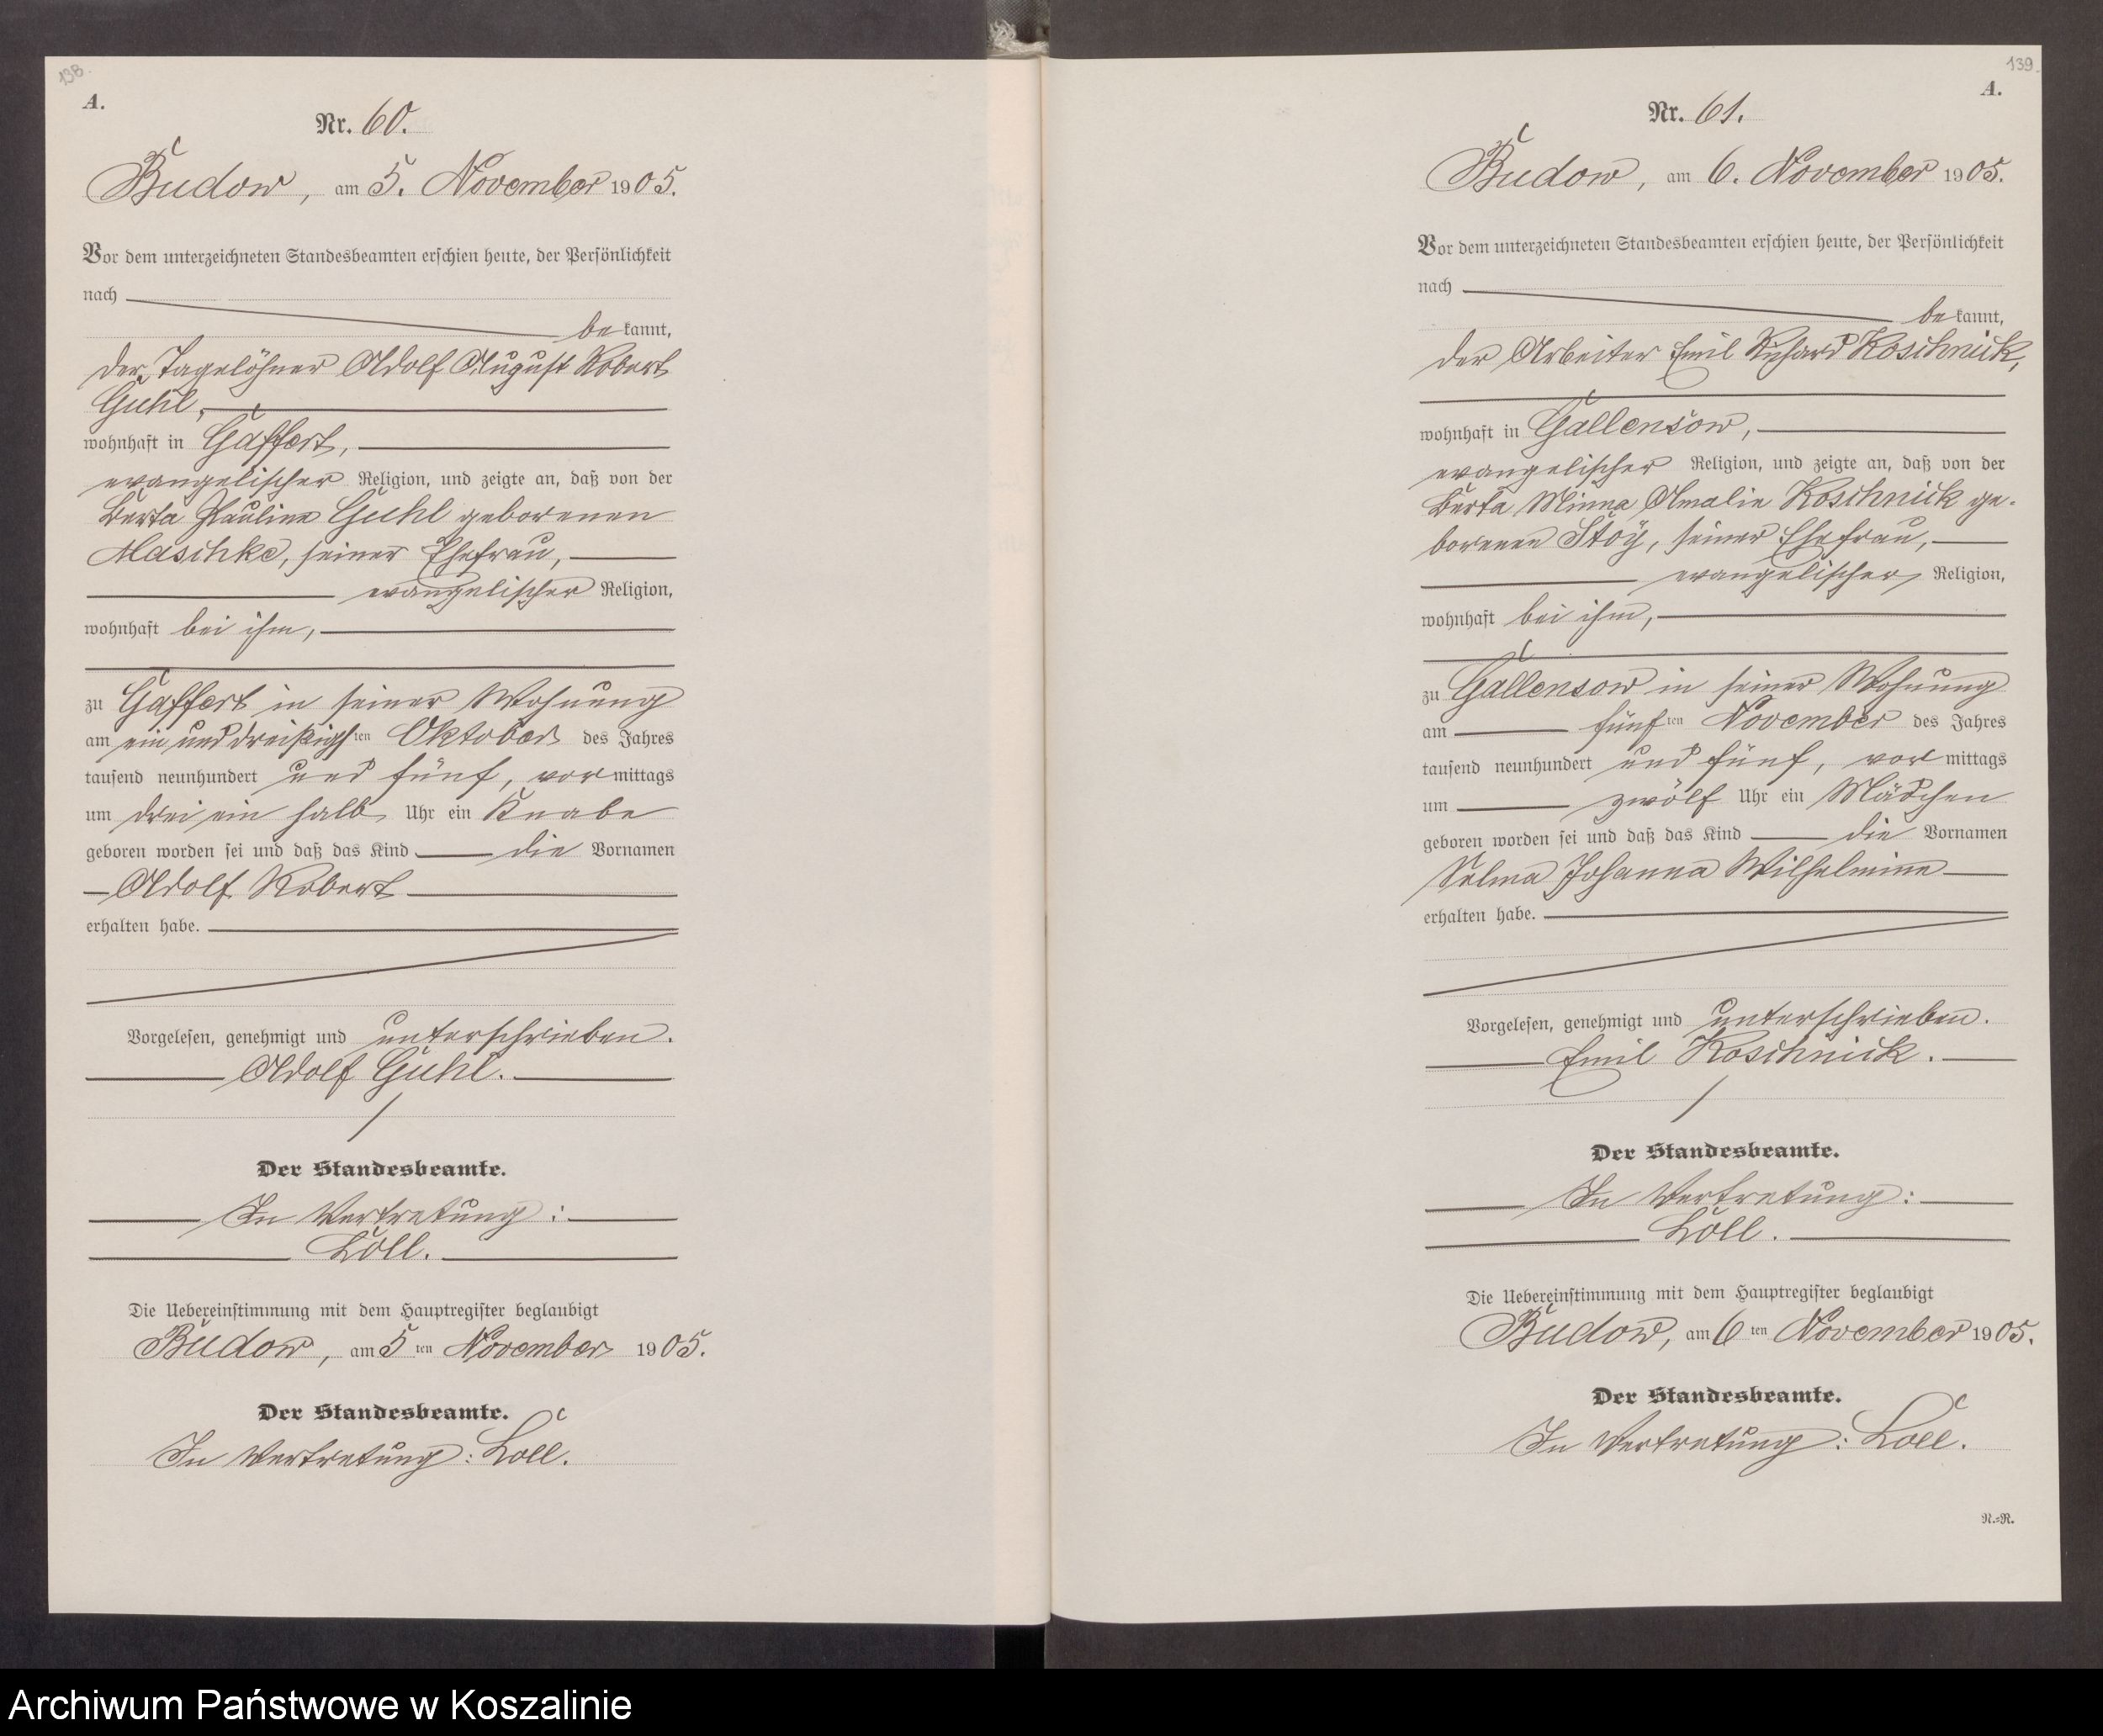 138.
A.
Nr. 60.
Budow, am 5. November 1905.
Vor dem unterzeichneten Standesbeamten erschien heute, der Persönlichkeit
nach
bekannt,
der Tagelöhner Adolf August Robert
Guhl,
wohnhaft in Gaffert,
evangelischer Religion, und zeigte an, daß von der
Berta Pauline Guhl geborenen
Maschke, seiner Ehefrau,
evangelischer Religion,
wohnhaft bei ihm,
zu Gaffert in seiner Wohnung
am ein und dreißigsten Oktober des Jahres
tausend neunhundert und fünf, vormittags
um drei ein halb Uhr ein Knabe
geboren worden sei und daß das Kind die Vornamen
Adolf Robert
erhalten habe.
Vorgelesen, genehmigt und unterschrieben.
Adolf Guhl.
Der Standesbeamte.
In Vertretung:
Löll.
Die Uebereinstimmung mit dem Hauptregister beglaubigt
Budow, am 5ten November 1905.
Der Standesbeamte.
In Vertretung: Löll.
139.
A.
Nr. 61.
Budow, am 6. November 1905.
Vor dem unterzeichneten Standesbeamten erschien heute, der Persönlichkeit
nach
bekannt,
der Arbeiter Emil Richard Koschnick,
wohnhaft in Gallensow,
evangelischer Religion, und zeigte an, daß von der
Berta Minna Amalie Koschnick ge-
borenen Stöy, seiner Ehefrau,
evangelischer Religion,
wohnhaft bei ihm,
zu Gallensow in seiner Wohnung
am fünften November des Jahres
tausend neunhundert und fünf, vormittags
um zwölf Uhr ein Mädchen
geboren worden sei und daß das Kind die Vornamen
Selma Johanna Wilhelmine
erhalten habe.
Vorgelesen, genehmigt und unterschrieben.
Emil Koschnick.
Der Standesbeamte.
In Vertretung:
Löll.
Die Uebereinstimmung mit dem Hauptregister beglaubigt
Budow, am 6ten November 1905.
Der Standesbeamte.
In Vertretung: Löll.
N.=R.
Archiwum Państwowe w Koszalinie